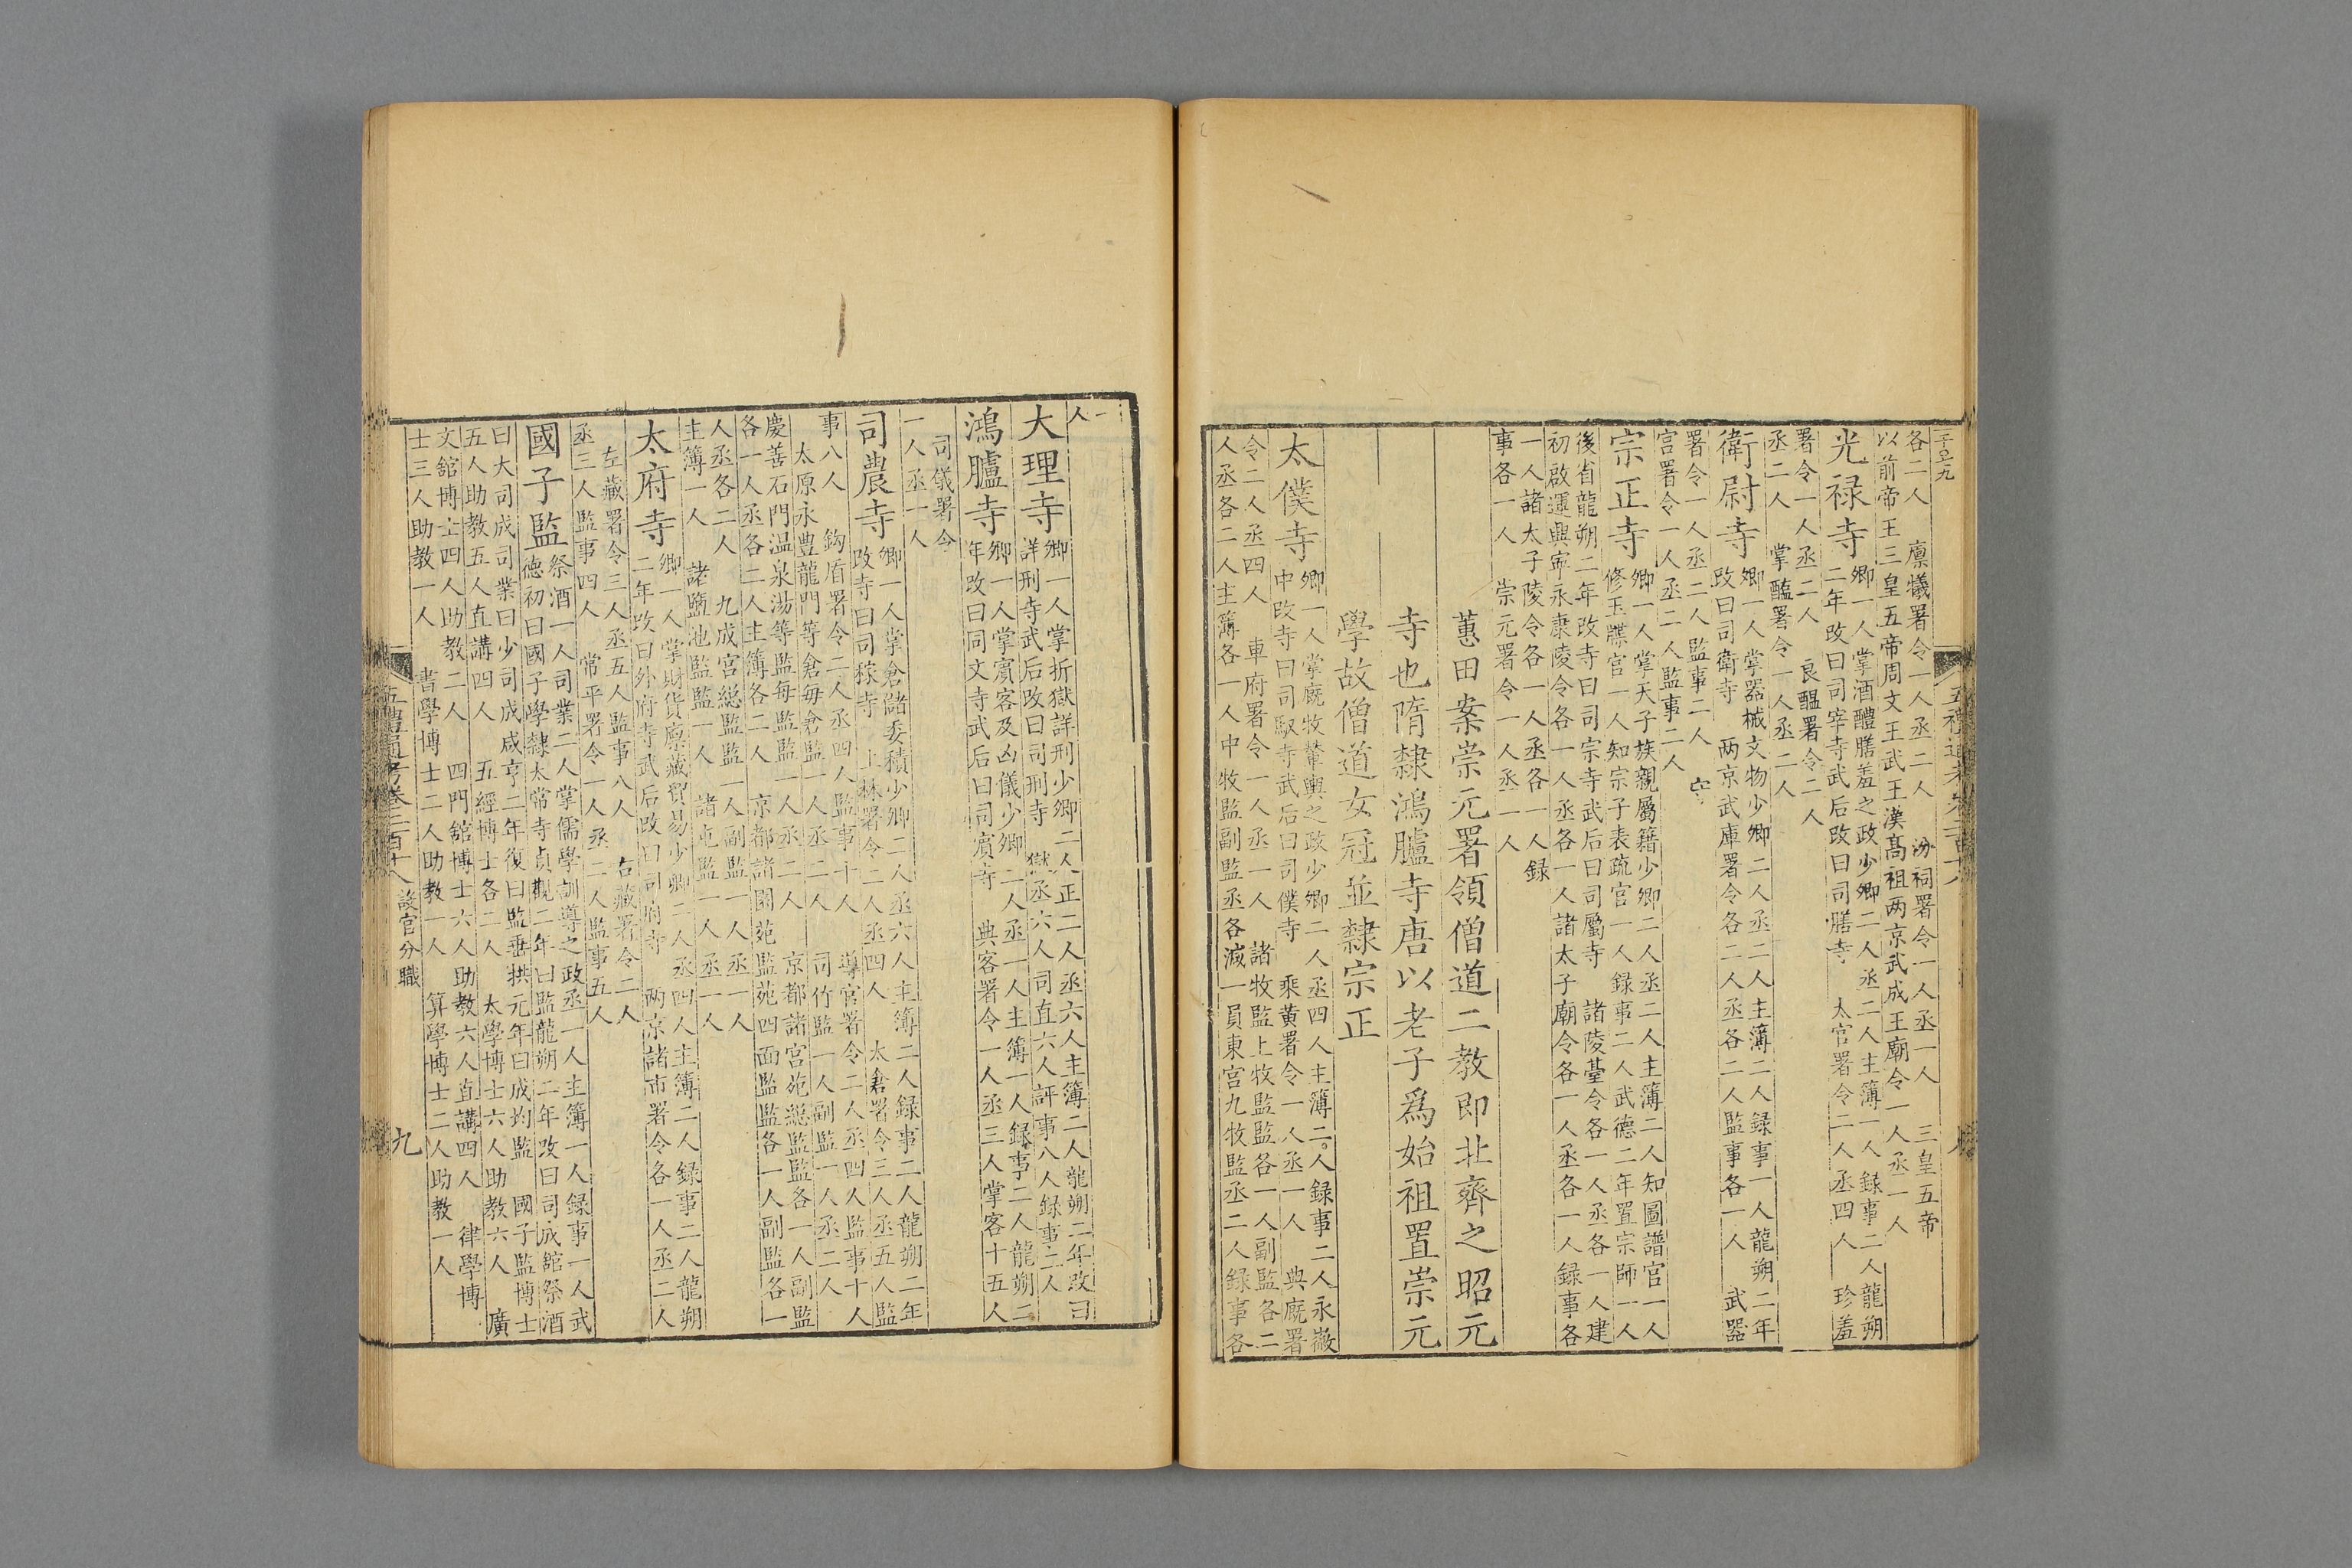 各二人　廪犧署令一人丞二人　汾祠署令一人丞一人　三皇五帝
以前帝王三皇五帝周文王武王漢髙祖两京武成王廟令一人丞一人
光禄寺
卿一人掌酒醴膳羞之政少卿二人丞二人主簿一人録事二人龍朔
二年改曰司宰寺武后改曰司膳寺　太官署令二人丞四人　珍羞
署令一人丞二人　良醖署令二人
丞二人　掌醢署令一人丞二人
衛尉寺
卿一人掌器械文物少卿二人丞二人主簿二人録事一人龍朔二年
改曰司衛寺　两京武庫署令各二人丞各二人監事各一人　武器
署令一人丞二人監事二人　守
宫署令一人丞二人監事二人
宗正寺
卿一人掌天子族親屬籍少卿二人丞二人主簿二人知圖譜官一人
修玉牒官一人知宗子表疏官一人録事二人武德二年置宗師一人
後省龍朔二年改寺曰司宗寺武后曰司屬寺　諸陵臺令各一人丞各一人建
初啟運興寧永康陵令各一人丞各一人諸太子廟令各一人丞各一人録事各
一人諸太子陵令各一人丞各一人録
事各一人　崇元署令一人丞一人
蕙田案崇元署領僧道二教即北齊之昭元
寺也隋隸鴻臚寺唐以老子爲始祖置崇元
學故僧道女冠並隸宗正
太僕寺
卿一人掌廐牧輦輿之政少卿二人丞四人主簿二人録事二人永徽
中改寺曰司馭寺武后曰司僕寺　乘黄署令一人丞一人　典廐署
令二人丞四人　車府署令一人丞一人　諸牧監上牧監監各一人副監各二
人丞各二人主簿各一人中牧監副監丞各減一員東宫九牧監丞二人録事各
一
人
大理寺
卿一人掌折獄詳刑少卿二人正二人丞六人主簿二人龍朔二年改曰
詳刑寺武后改曰司刑寺　獄丞六人司直六人評事八人録事二人
鴻臚寺
卿一人掌賓客及凶儀少卿二人丞一人主簿一人録事二人龍朔二
年改曰同文寺武后曰司賓寺　典客署令一人丞三人掌客十五人
司儀署令
一人丞一人
司農寺
卿一人掌倉儲委積少卿二人丞六人主簿二人録事二人龍朔二年
改寺曰司稼寺　上林署令二人丞四人　太倉署令三人丞五人監
事八人　鈎盾署令二人丞四人監事十人　導官署令二人丞四人監事十人
太原永豊龍門等倉每倉監一人丞二人　司竹監一人副監一人丞二人
慶善石門温泉湯等監每監監一人丞二人　京都諸宫苑緫監監各一人副監
各一人丞各二人主簿各二人　京都諸園苑監苑四面監監各一人副監各一
人丞各二人　九成宫緫監監一人副監一人丞一人
主簿一人　諸鹽池監監一人　諸屯監一人丞一人
太府寺
卿一人掌財貨廪藏貿易少卿二人丞四人主簿二人録事二人龍朔
二年改曰外府寺武后改曰司府寺　两京諸市署令各一人丞二人
左藏署令三人丞五人監事八人　右藏署令二人
丞三人監事四人　常平署令一人丞二人監事五人
國子監
祭酒一人司業二人掌儒學訓導之政丞一人主簿一人録事一人武
德初曰國子學隸太常寺貞觀二年曰監龍朔二年改曰司成舘祭酒
曰大司成司業曰少司成咸亨二年復曰監垂拱元年曰成均監　國子監博士
五人助教五人直講四人　五經博士各二人　太學博士六人助教六人　廣
文舘博士四人助教二人　四門舘博士六人助教六人直講四人　律學博
士三人助教一人　書學博士二人助教一人　算學博士二人助教一人
五禮通考卷二百十八　設官分職
九